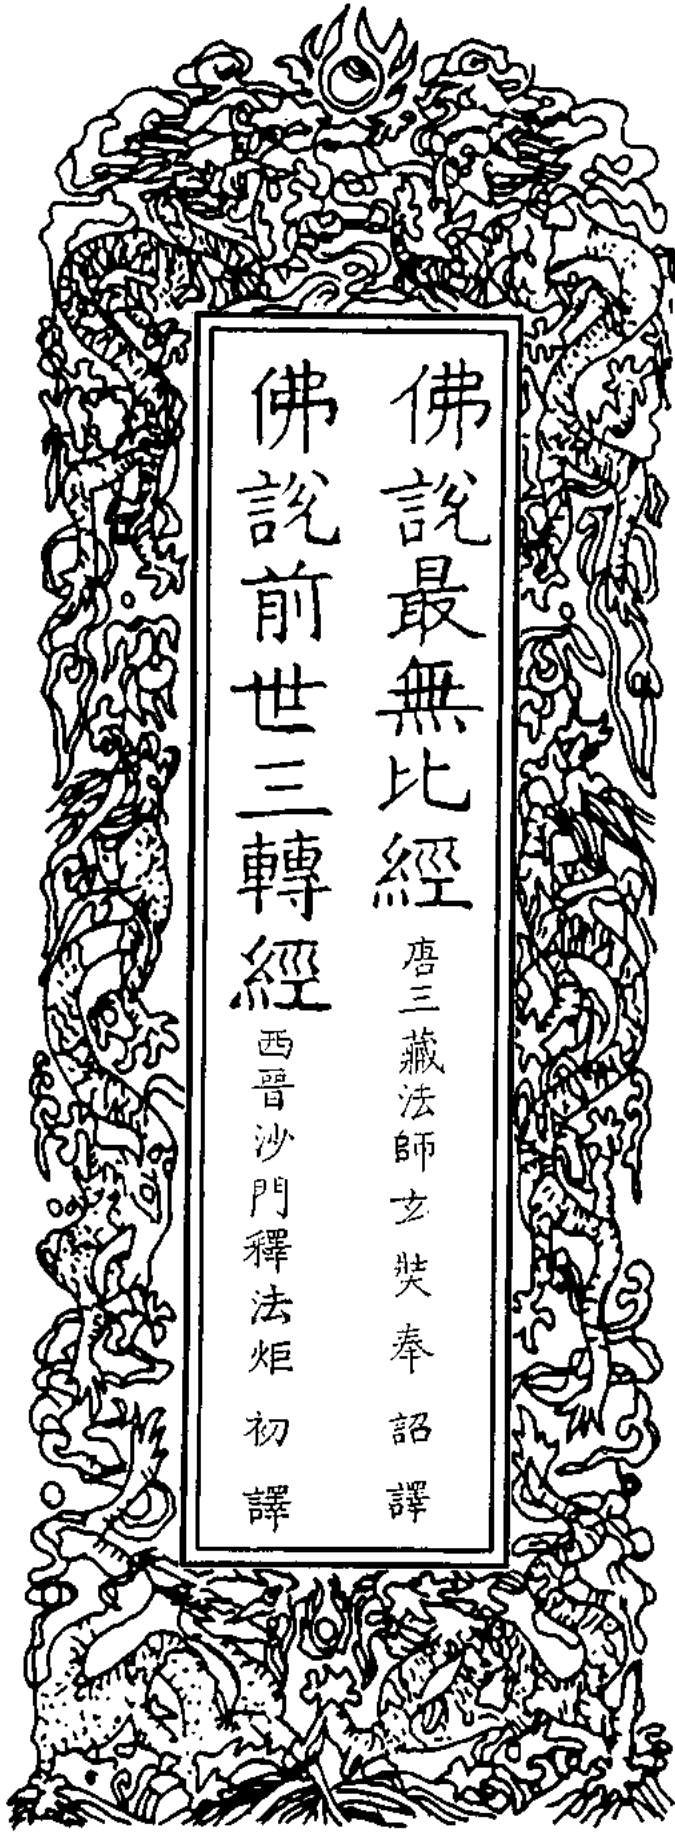 佛說最無比經 唐三藏法師玄奘奉詔譯
佛說前世三轉經 西晉沙門釋法炬初譯